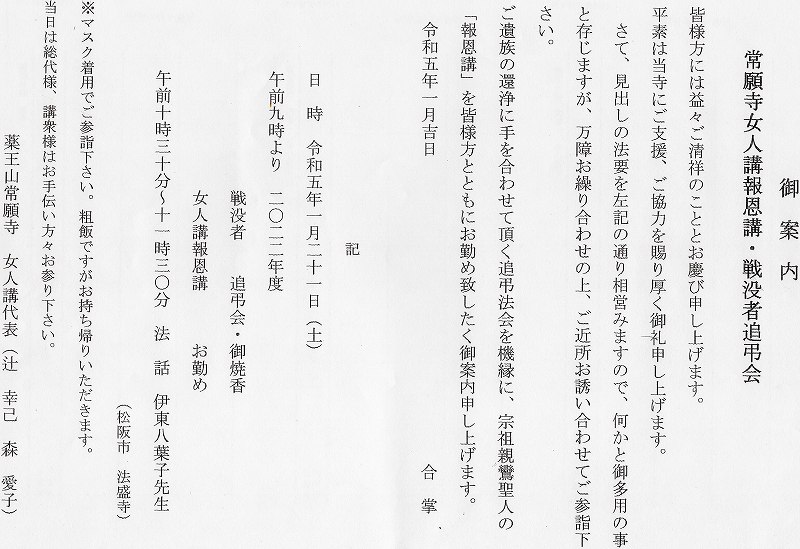 御案内
常願寺女人講報恩講・戦没者追弔会
皆様方には益々ご清祥のこととお慶び申し上げます。
平素は当寺にご支援、ご協力を賜り厚く御礼申し上げます。
さて、見出しの法要を左記の通り相営みますので、何かと御多用の事
と存じますが、万障お繰り合わせの上、ご近所お誘い合わせてご参詣下
さい。
ご遺族の還浄に手を合わせて頂く追弔法会を機縁に、宗祖親鸞聖人の
「報恩講」を皆様方とともにお勤め致したく御案内申し上げます。
令和五年一月吉日 合掌
記
日時 令和五年一月二十一日（土）
午前九時より 二〇二二年度
戦没者 追弔会・御焼香
女人講報恩講 お勤め
午前十時三十分～十一時三〇分 法話 伊東八葉子先生
（松阪市 法盛寺）
※マスク着用でご参詣下さい。粗飯ですがお持ち帰りいただきます。
当日は総代様、講衆様はお手伝い方々お参り下さい。
薬王山常願寺 女人講代表（辻 幸己 森 愛子）